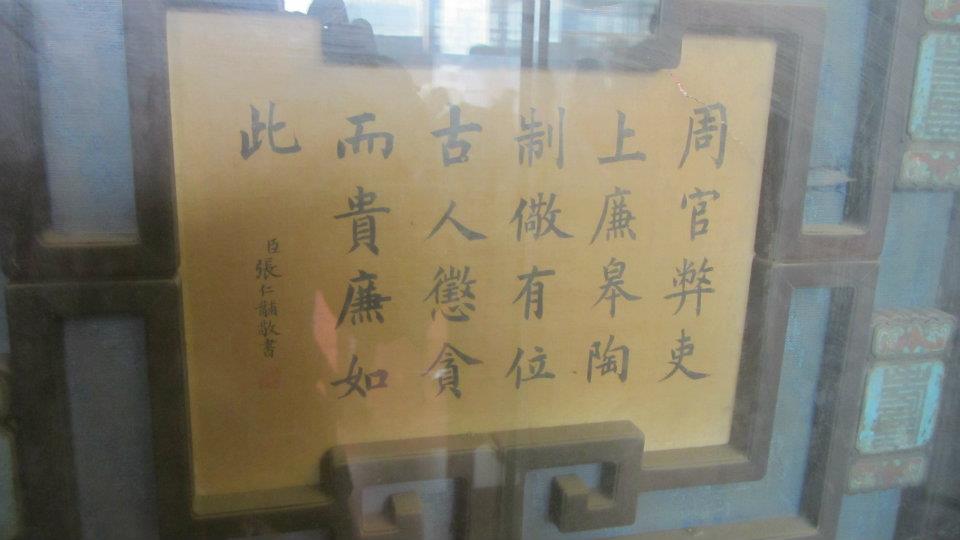 周官弊吏
上廉皋陶
制儆有位
古人懲貪
而貴廉如
此
臣張仁黼敬書